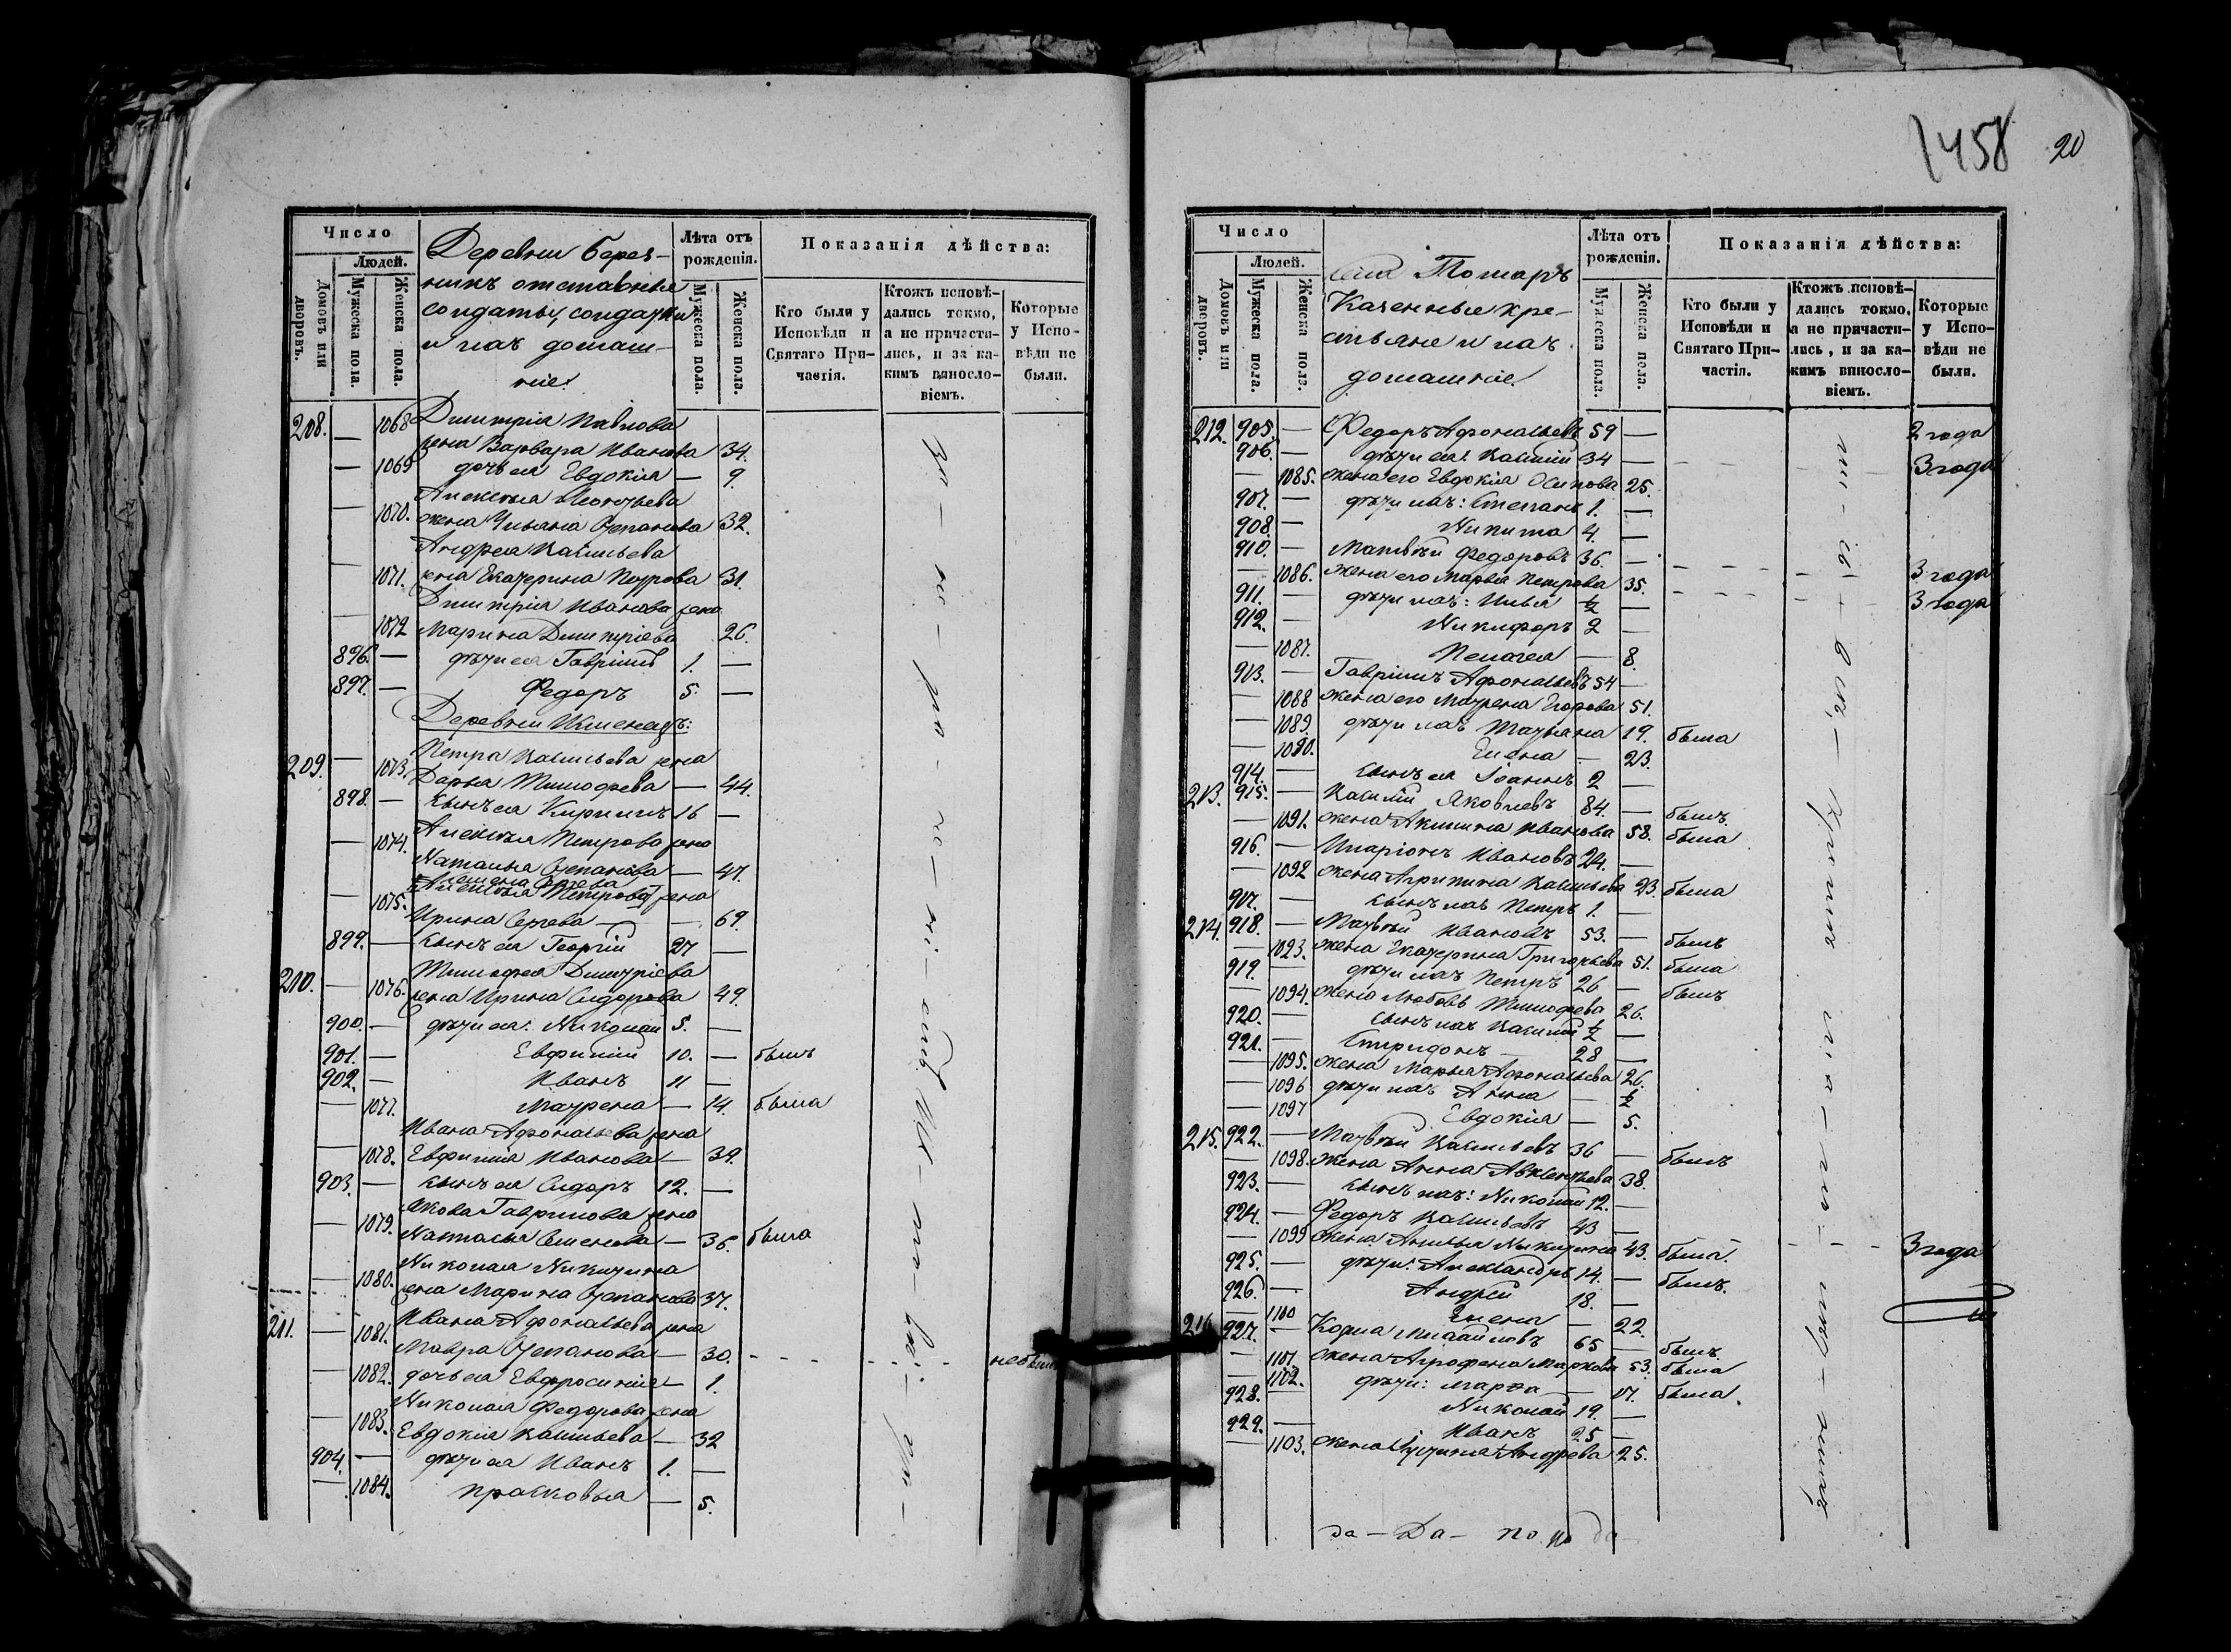 Число
Людей.
Домовъ или дворовъ.
Мужеска пола.
Женска пола.
Деревни Берез-
никъ отставные
солдаты, солдатки
и ихъ домаш-
ніе
Лѣта отъ рожденія.
Мужеска пола
Женска пола.
Показанія дѣйства:
Кто были у Исповѣди и Святаго При-частія.
Ктожъ исповѣ-дались токмо, а не причасти-лись, и за ка-кимъ винослo-віемъ.
Которые у Испо-вѣди не были.
208. — 1068 Димитрія Павлова
жена Варвара Иванова 34.
— 1069 дочь ея Евдокія — 9.
Алексѣя
— 1070. жена Ульяна Степанова 32.
Андрея Васильева
— 1071. жена Екатерина Петрова 31.
Димитрія Иванова жена
— 1072 Марина Димитріева 26.
896. — дѣти ея Гавріилъ 1. —
897. — Федоръ 5. —
Деревни
Петра Васильева жена
209. — 1073. Дарья Тимофева — 44.
898. — сынъ ея Кирилъ 16 —
Алексѣя Петрова жена
— 1074. Наталья Степанова — 47.
жена
— 1075. Ирина Сергева — 69.
899. — сынъ ея Георгій 27 —
Тимофея Димитріева
210. — 1076. жена Ирина Сидорова 49.
900. — дѣти ея: Николай 5. —
901. — Евфимій 10. — былъ
902. — Иванъ 11 —
— 1077. Матрена — 14. была
Ивана Афонасьева жена
— 1078. Евфимія Иванова — 39.
903. — сынъ ея Сидоръ 12. —
Якова Гаврилова жена
— 1079. Наталья Семенова — 36. была
Николая Никитина
— 1080. жена Марина Степанова 37.
211. Ивана Афонасьева жена
— 1081. Мавра Степанова — 30. - - - - - - не была
— 1082. дочь ея Евфросинія — 1.
Николая Федорова жена
— 1083. Евдокія Васильева — 32
904. — дѣти ея Иванъ 1. —
— 1084. Прасковья — 5.
1458 20
Число
Людей.
Домовъ или дворовъ.
Мужеска пола.
Женска пола.
Села Тошаръ
Казенные кре-
стьяне и ихъ
домашніе.
Лѣта отъ рожденія.
Мужеска пола.
Женска пола.
Показанія дѣйства:
Кто были у Исповѣди и Святаго При-частія.
Ктожъ исповѣ-дались токмо, а не причасти-лись, и за ка-кимъ винослo-віемъ.
Которые у Испо-вѣди не были.
212. 905. — Федоръ Афонасьевъ 59 — 2 года
906. — дѣти ея: Василій 34 — - - - - 3 года
— 1085. жена его Евдокія Осипова 25.
907. — дѣти ихъ: Степанъ 1. —
908. — Никита 4. —
910. — Матвѣй Федоровъ 36. — - - - - 3 года
— 1086. жена его Марья Петрова 35. - - - - 3 года
911. — дѣти ихъ: Илья ½ —
912. — Никифоръ 2 —
— 1087. Пелагея — 8.
913. — Гавріилъ Афонасьевъ 54 —
— 1088 жена его Матрена Егорова 51.
— 1089 дѣти ихъ Татьяна 19. была
— 1090. Елена — 23.
914. — сынъ ея Іоаннъ 2 —
213. 915. — Василій Яковлевъ 84. — былъ.
— 1091. жена Акилина Иванова 58. была
916. — Иларіонъ Ивановъ 24. —
— 1092 жена Агрипина Васильева 23. была
917. — сынъ ихъ Петръ 1. —
214. 918. — Матвѣй Ивановъ 53. — былъ
— 1093. жена Екатерина Григорьева 51. была
919. — дѣти ихъ Петръ 26 — былъ
— 1094. жена Любовь Тимофева 26.
920. — сынъ ихъ Василій ½ —
921. — Спиридонъ — 28 —
— 1095. жена Марья Афонасьева 26.
— 1096 дѣти ихъ Анна — ½
— 1097 Евдокія — 5.
215. 922. — Матвѣй Васильевъ 36 — былъ
— 1098. жена Анна Авксентьева 38.
923. — сынъ ихъ: Николай 12. —
924. — Федоръ Васильевъ 43 —
— 1099 жена Никитина 43. была. - - - 3 года
925. — дѣти: Александръ 14. — былъ.
926. — Андрей 18. —
— 1100 Елена — 22.
216. 927. — Козма Михайловъ 65 — былъ.
— 1101. жена Агрофена Маркова 53. была
— 1102. дѣти: Марѳа — 17. была.
928. — Николай 19. —
929. — Иванъ 25 —
— 1103. жена Устина Андреева 25.